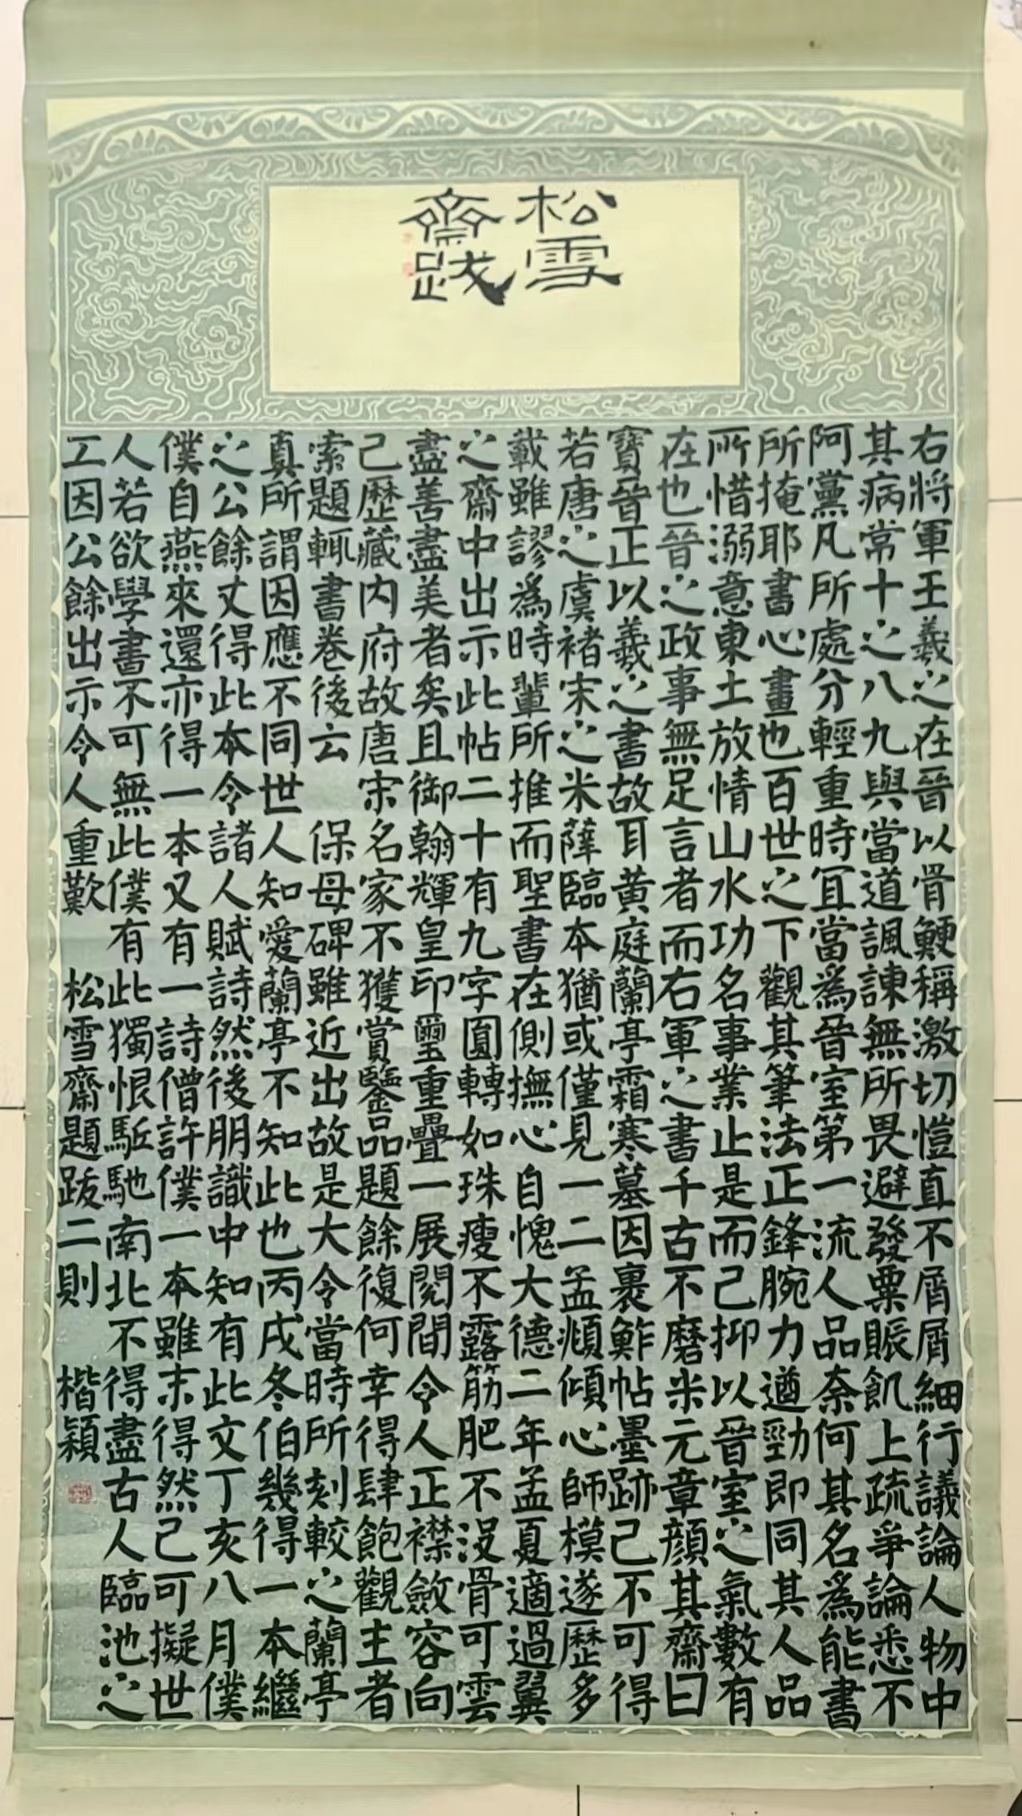 松雪
齋跋
右將軍王羲之在晉以骨鯁稱激切愷直不屑屑細行議論人物中
其病常十之八九與當道諷諫無所畏避發粟賑飢上疏爭論悉不
阿黨凡所處分輕重時宜當為晉室第一流人品奈何其名為能書
所掩耶書心畫也百世之下觀其筆法正鋒腕力遒勁即同其人品
所惜溺意東土放情山水功名事業止是而己抑以晉室之氣數有
在也晉之政事無足言者而右軍之書千古不磨米元章顏其齋曰
寶晉正以羲之書故耳黃庭蘭亭霜寒墓因裹鮓帖墨跡己不可得
若唐之虞褚宋之米薛臨本猶或僅見一二孟頫傾心師模遂歷多
載雖謬為時輩所推而聖書在側撫心自愧大德二年孟夏適過翼
之齋中出示此帖二十有九字圓轉如珠瘦不露筋肥不沒骨可雲
盡善盡美者矣且御翰輝皇印璽重疊一展閱間令人正襟斂容向
己歷藏內府故唐宋名家不獲賞鑒品題餘復何幸得肆飽觀主者
索題輒書卷後云 保母碑雖近出故是大令當時所刻較之蘭亭
真所謂因應不同世人知愛蘭亭不知此也丙戌冬伯幾得一本繼
之公餘丈得此本令諸人賦詩然後朋識中知有此文丁亥八月僕
僕自燕來還亦得一本又有一詩僧許僕一本雖末得然己可擬世
人若欲學書不可無此僕有此獨恨駈馳南北不得盡古人臨池之
工因公餘出示令人重歎 松雪齋題跋二則 楷穎